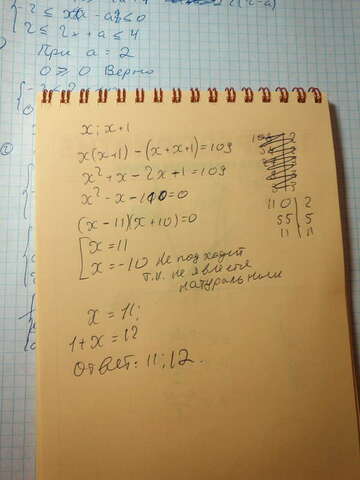 -2 ≤ x
2 ≤ 2x + a ≤ 4
При a = 2
0 ≥ 0 Верно
x; x+1
x(x+1) - (x+x+1) = 109
x² + x - 2x + 1 = 109
x² - x - 110 = 0
(x - 11)(x + 10) = 0
x = 11
x = -10 Не подходит
т.к. не является
натуральными
110 | 2
55 | 5
11 | 11
x = 11;
1 + x = 12
Ответ: 11; 12.